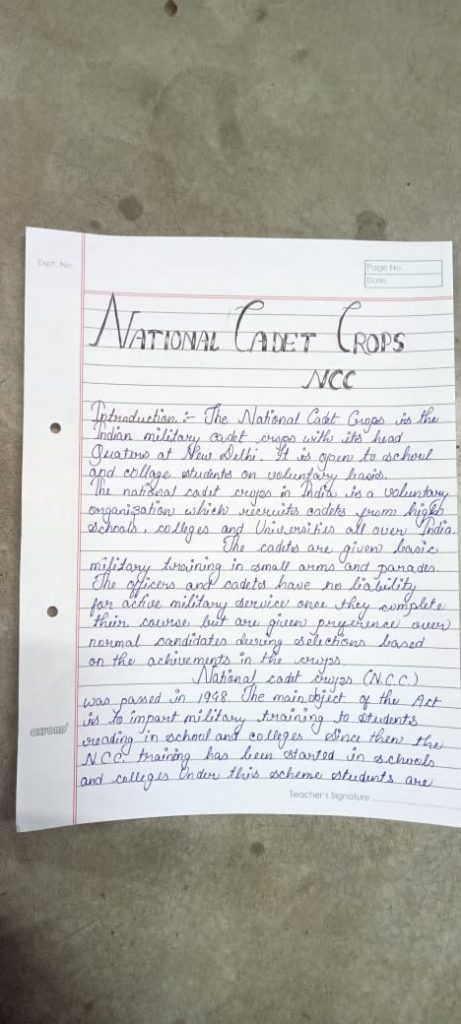 Expt. No.
Page No.
Date
NATIONAL CADET CROPS
NCC
Introduction :- The National Cadet Crops is the
Indian military cadet crops with its head
Quaters at New Delhi. It is open to school
and collage students on voluntary basis.
The national cadet crops in India is a voluntary
organization which recruits cadets from high
schools, colleges and Universities all over India.
The cadets are given basic
military training in small arms and parades.
The officers and cadets have no liability
for active military service once they complete
their course but are given preference over
normal candidates during selections based
on the achivements in the crops.
National cadet crops (N.C.C.)
was passed in 1948. The main object of the Act
is to impart military training to students
reading in school and colleges since then the
N.C.C. training has been started in schools
and colleges Under this scheme students are
OXFORD
Teacher's Signature